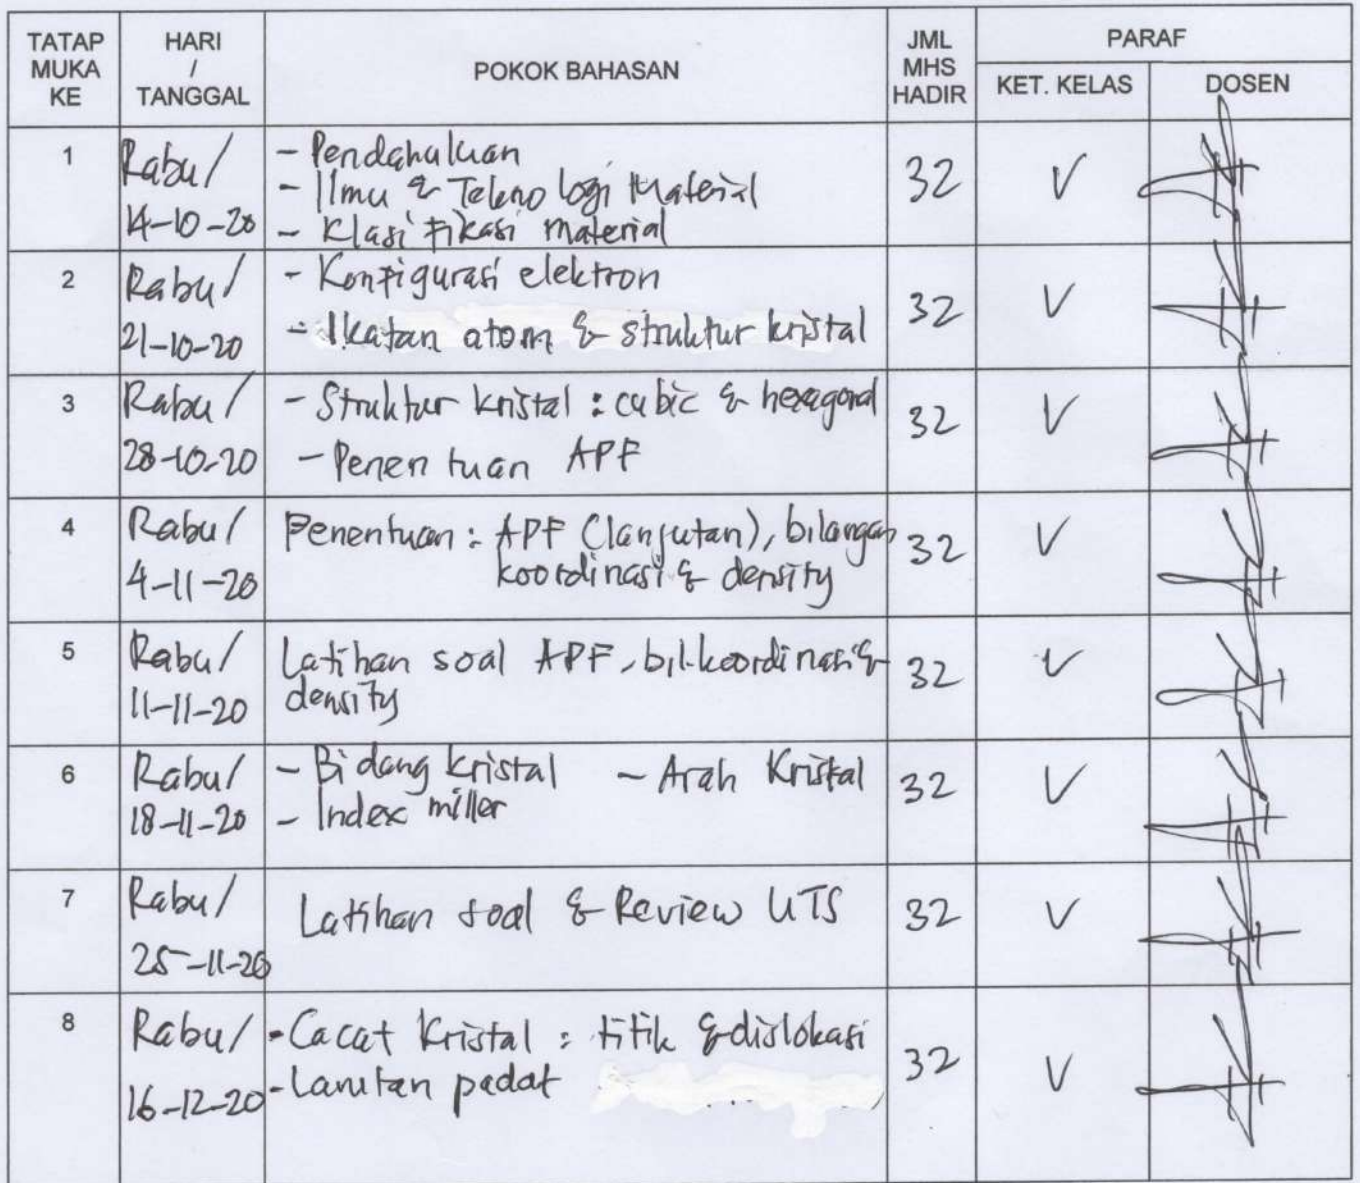 TATAP MUKA KE
HARI / TANGGAL
POKOK BAHASAN
JML MHS HADIR
PARAF
KET. KELAS
DOSEN
1
Rabu/
14-10-20
- Pendahuluan
- Ilmu & Teknologi Material
- Klasifikasi material
32
V
2
Rabu/
21-10-20
- Konfigurasi elektron
- Ikatan atom & struktur kristal
32
V
3
Rabu/
28-10-20
- Struktur kristal : cubic & hexagonal
- Penentuan APF
32
V
4
Rabu/
4-11-20
Penentuan : APF (lanjutan), bilangan
koordinasi & density
32
V
5
Rabu/
11-11-20
Latihan soal APF, bil. koordinasi &
density
32
V
6
Rabu/
18-11-20
- Bidang kristal - Arah Kristal
- Index miller
32
V
7
Rabu/
25-11-20
Latihan soal & Review UTS
32
V
8
Rabu/
16-12-20
- Cacat Kristal : titik & dislokasi
- Larutan padat
32
V